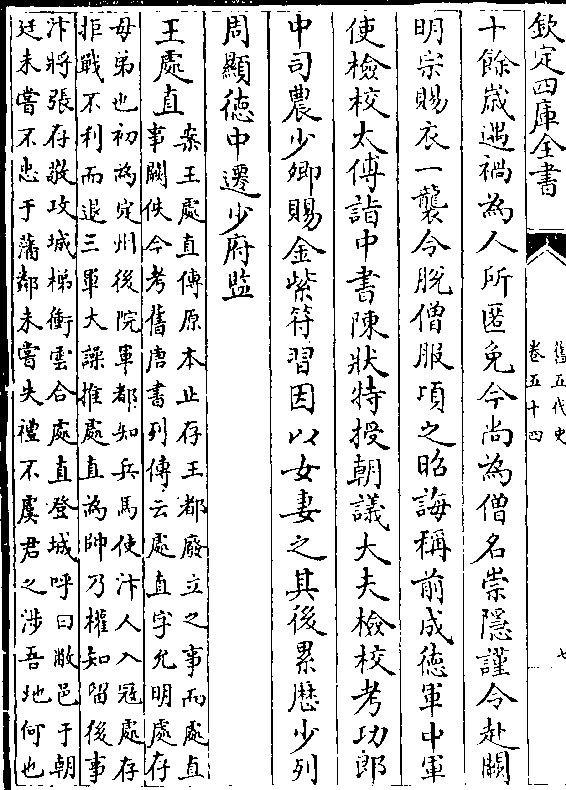 欽定四庫全書
舊五代史
卷五十四
七
十餘歲遇禍為人所匿免今尚為僧名崇隱謹令赴闕
明宗賜衣一襲令脫僧服項之昭誨稱前成徳軍中軍
使檢校太傅詣中書陳狀特授朝議大夫檢校考功郎
中司農少卿賜金紫符習因以女妻之其後累歴少列
周顯徳中遷少府監
王處直
案王處直傳原本止存王都廢立之事而處直
事闕佚今考舊唐書列傳云處直字允明處存
母弟也初為定州後院軍都知兵馬使汴人入冦處存
拒戰不利而退三軍大譟推處直為帥乃權知留後事
汴將張存敬攻城梯衝雲合處直登城呼曰敝邑于朝
廷未嘗不忠于藩鄰未嘗失禮不虞君之涉吾地何也